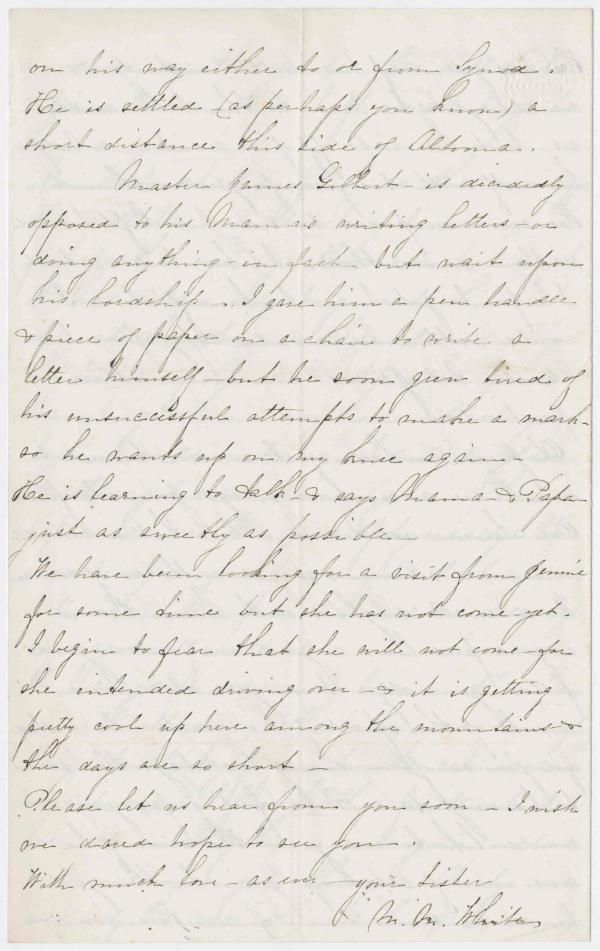 on his way either to or from Synod.
He is settled (as perhaps you know) a
short distance this side of Altoona.
Master James Gilbert - is decidedly
opposed to his Mama's writing letters - or
doing anything - in fact - but wait upon
his lordship. I gave him a pen handle
& piece of paper on a chair to write a
letter himself - but he soon grew tired of
his unsuccessful attempts to make a mark -
so he wants up on my knee again -
He is learning to talk - & says Mama - & Papa
just as sweetly as possible
We have been looking for a visit from Jennie
for some time but she has not come - yet -
I begin to fear that she will not come - for
she intended driving over - & it is getting
pretty cool up here among the mountains &
the days are so short -
Please let us hear from you soon - I wish
we dared hope to see you.
With much love - as ever - your sister
M. M. White